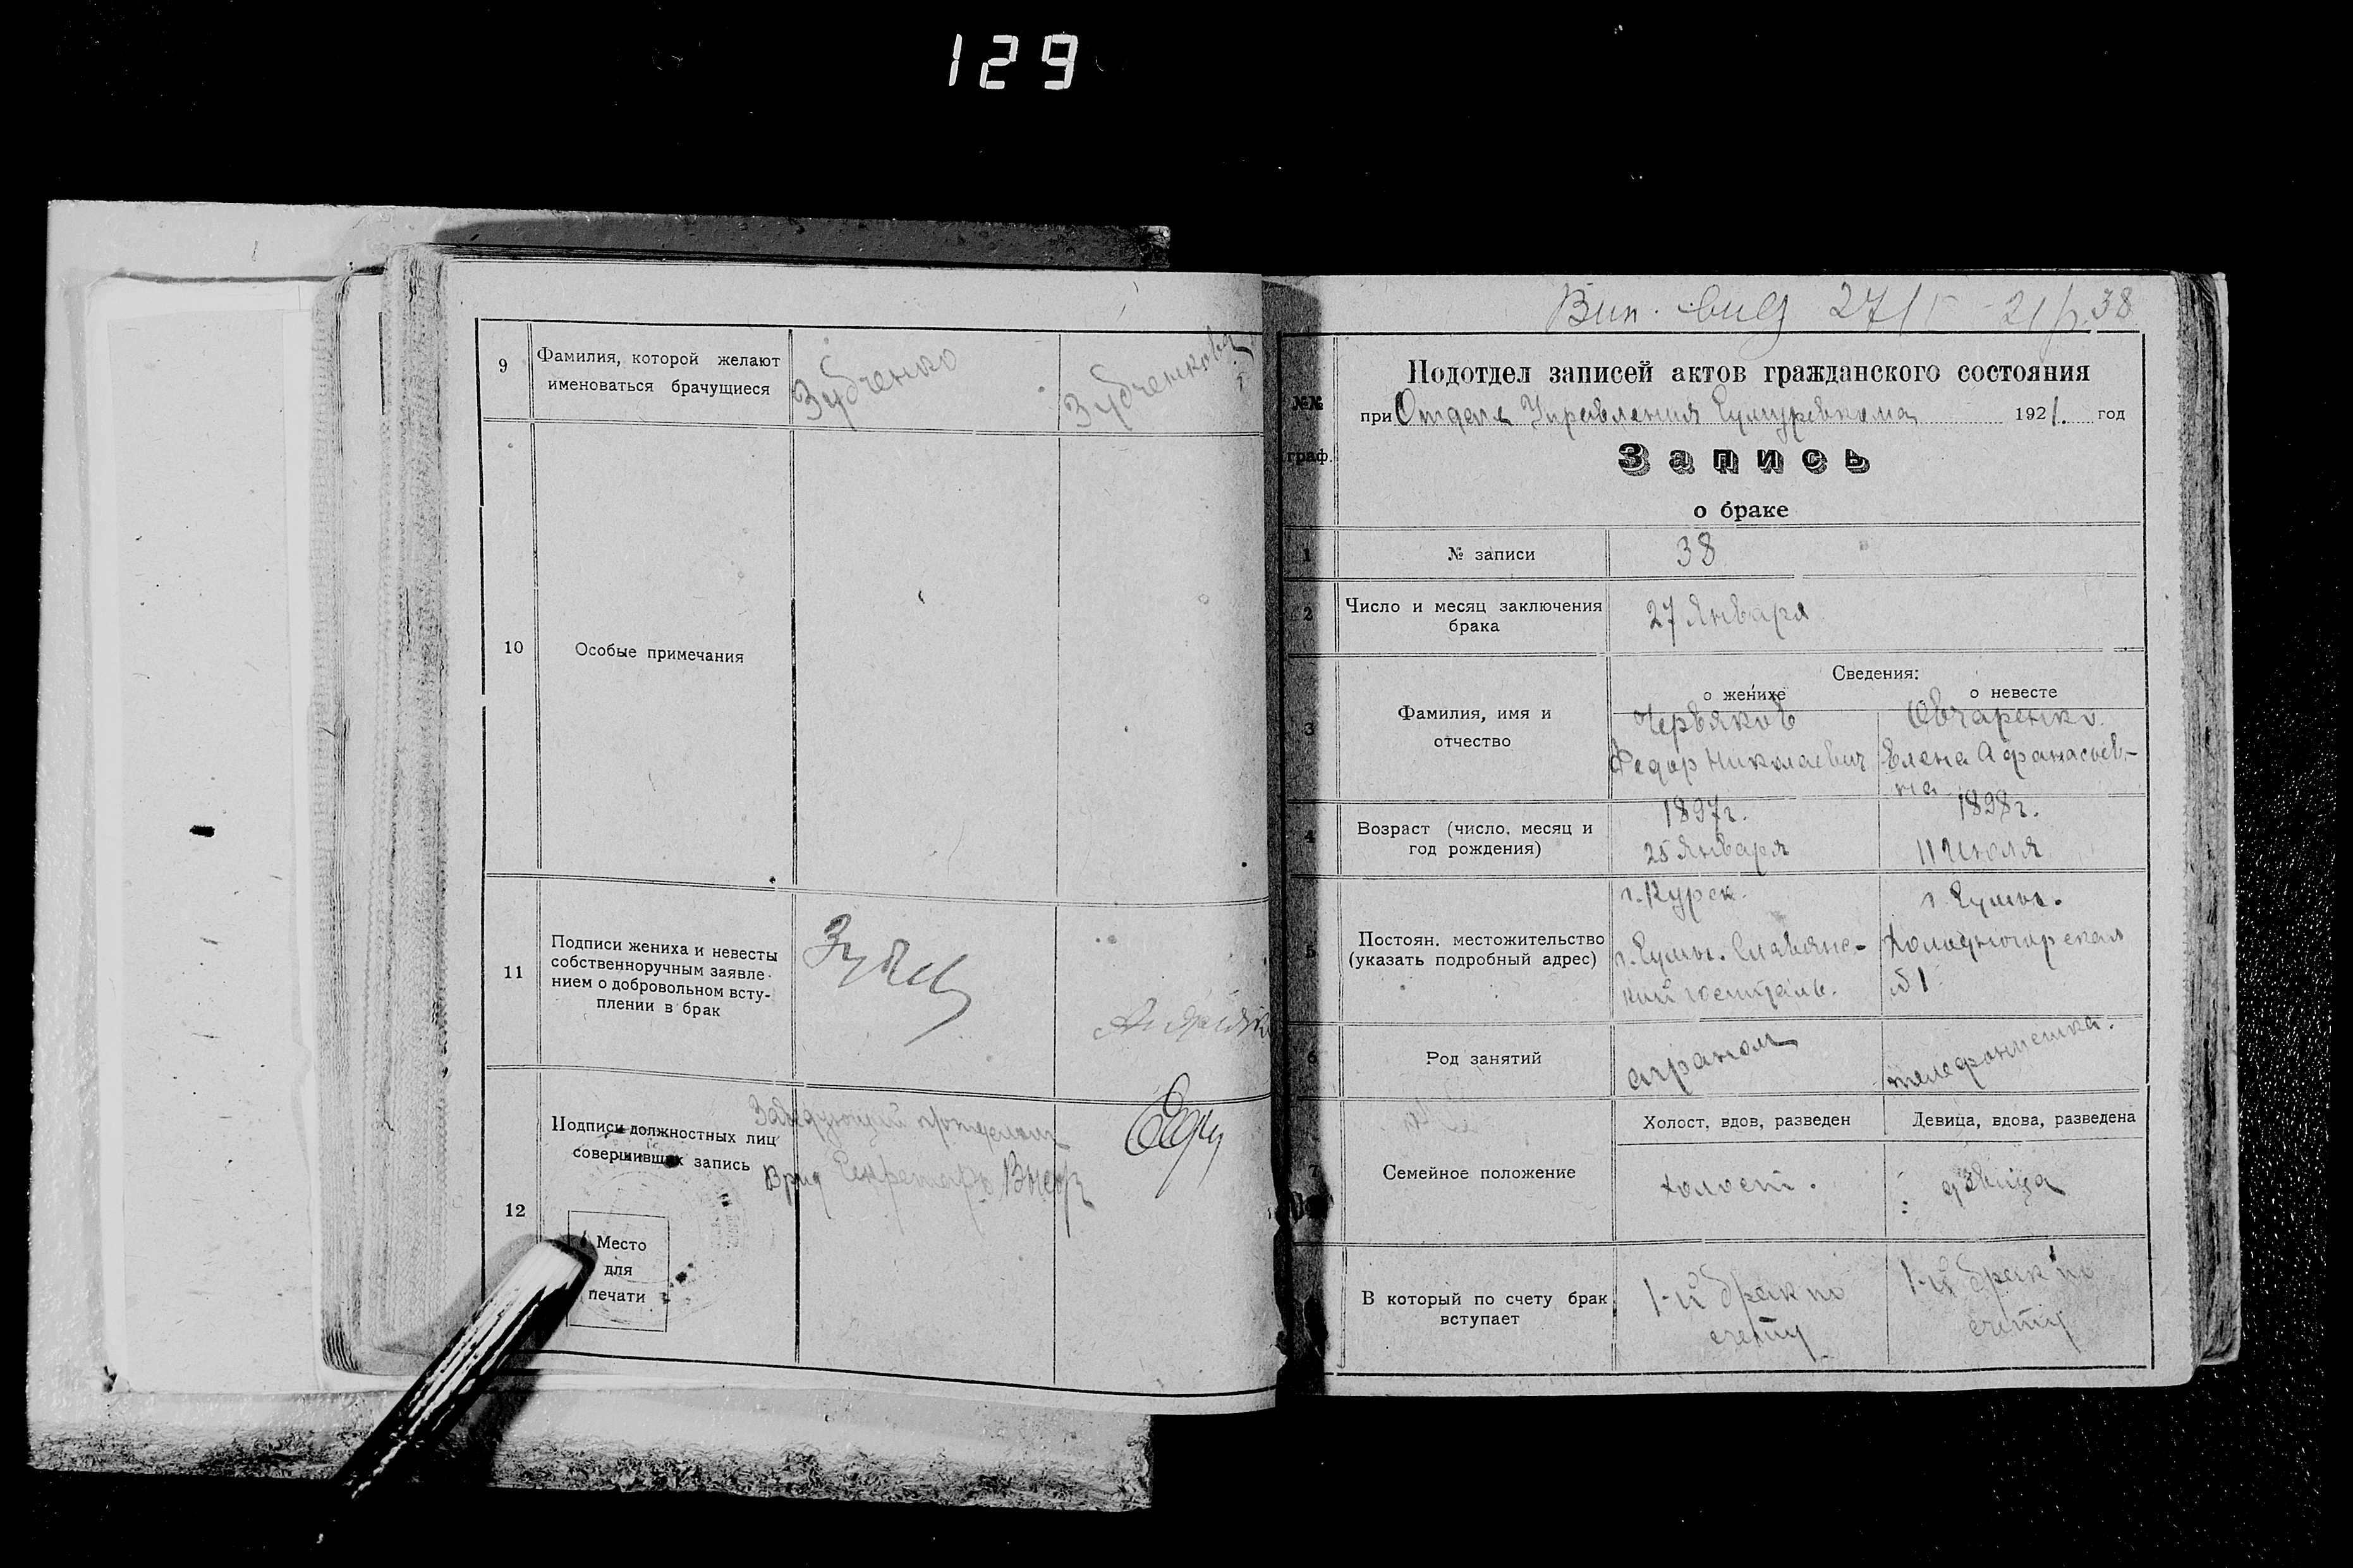 129
9
Фамилия, которой желают
именоваться брачущиеся
Зубченко
Зубченкова
10
Особые примечания
11
Подписи жениха и невесты
собственноручным заявле-
нием о добровольном всту-
плении в брак
12
Подписи должностных лиц
совершивших запись
Заведующий
Врид Секретарь
Место
для
печати
Вып. вид 27/I - 21 г. 38
№№
граф.
Подотдел записей актов гражданского состояния
при Отделе Управления Сумуревкома 1921. год
Запись
о браке
1
№ записи
38
2
Число и месяц заключения
брака
27 Января
Сведения:
о женихе
о невесте
3
Фамилия, имя и
отчество
Червяков
Федор Николаевич
Овчаренко
Елена Афанасьев-
на
4
Возраст (число, месяц и
год рождения)
1897г.
25 Января
1898г.
11 Июля
5
Постоян. местожительство
(указать подробный адрес)
г. Курск.
г. Сумы. Славянс-
кий госпиталь.
г. Сумы.
Холодногорская
№1
6
Род занятий
агроном
телефонистка.
7
Семейное положение
Холост, вдов, разведен
Девица, вдова, разведена
холост.
дѣвица
В который по счету брак
вступает
1-й брак по
счету
1-й брак по
счету